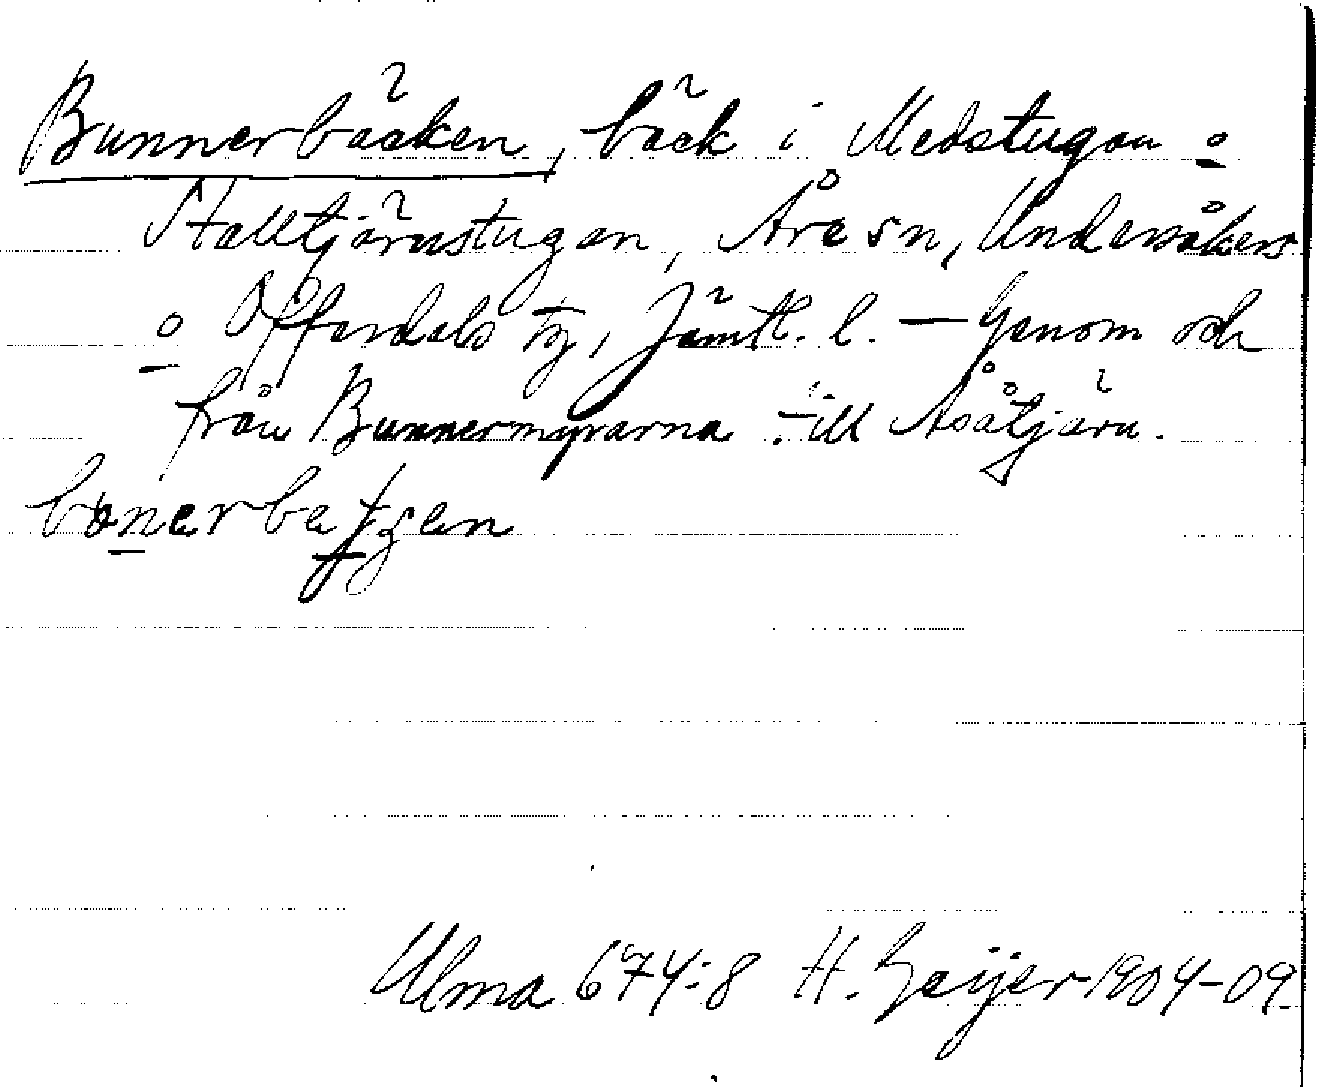 Bunnerbäcken, bäck i Medstugan o
Stalltjärnstugan, Åre sn, Undersåkers
o Offerdals tg, Jämtl. l. — Genom och
från Bunnermyrarna till Åsåtjärn.
Ulma 674:8 H. Geijer 1904-09